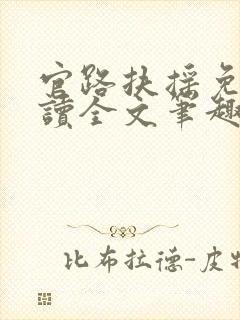 官路扶搖免
讀全文筆趣
比布拉德-皮特